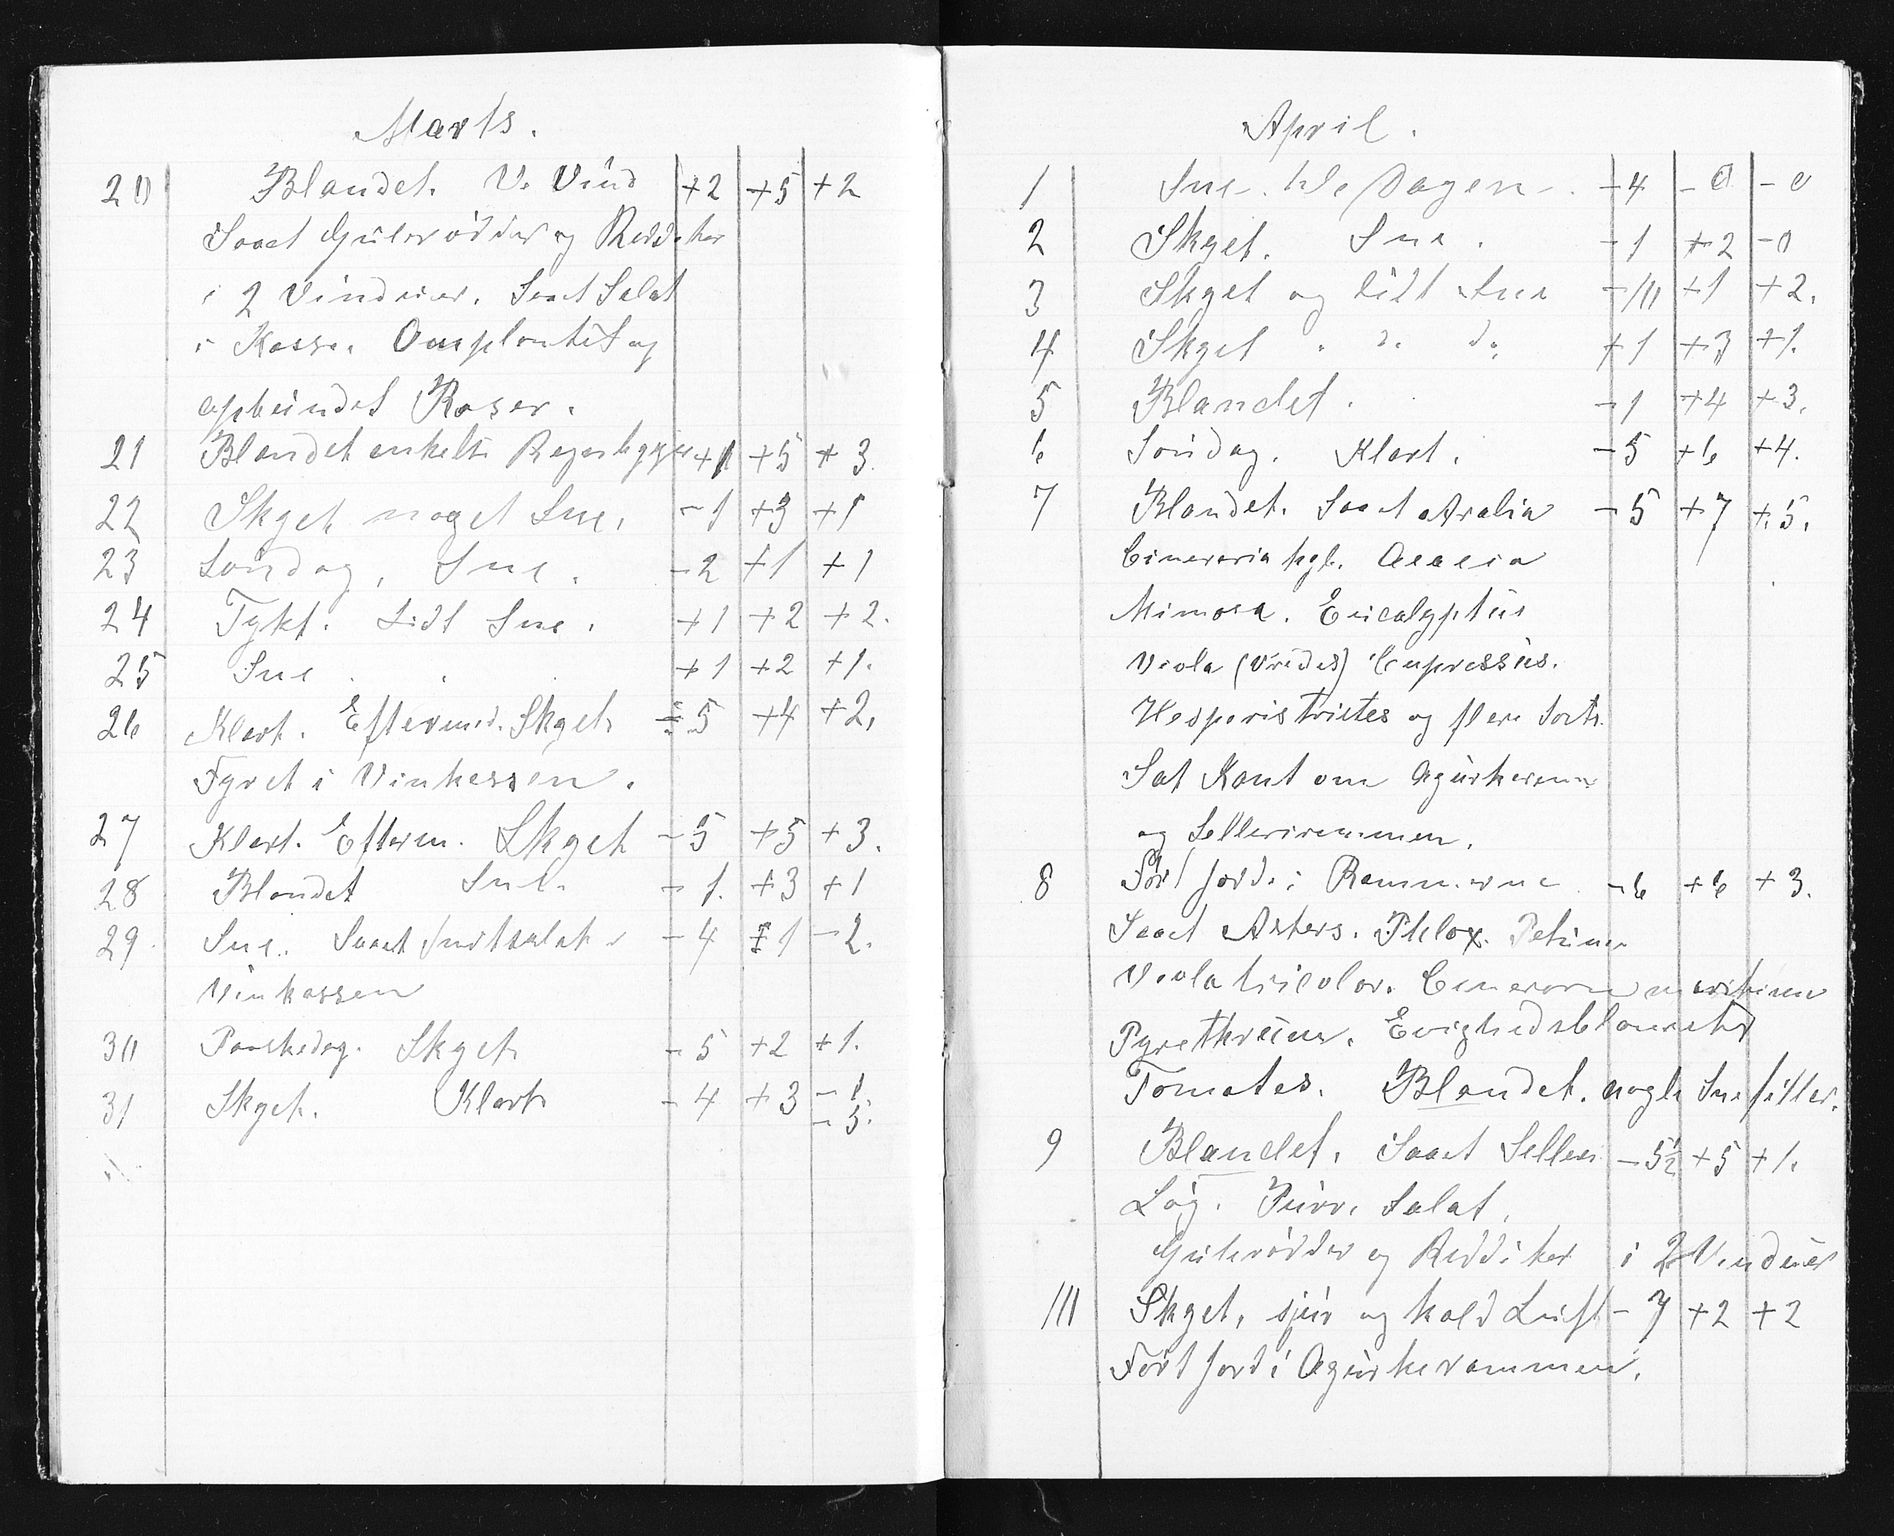 Marts.
20 Blandet. V. Vind +2 +5 +2
Saaet Gulerødder og Reddiker
i 2 Vinduer. Saaet Salat
i Kasse. Omplantet og
opbundet Roser.
21 Blandet enkelte Regnbyger +1 +5 +3.
22 Skyet noget Sne. -1 +3 +1
23 Søndag. Sne. -2 +1 +1
24 Tykt. Lidt Sne. +1 +2 +2.
25 Sne +1 +2 +1.
26 Klart. Eftermd. Skyet -5 +4 +2.
Fyret i Vinkassen.
27 Klart. Efterm. Skyet -5 +5 +3.
28 Blandet Sne. -1. +3 +1
29 Sne. Saaet i -4 +1 -2.
Vinkassen
30 Paaskedag. Skyet -5 +2 +1.
31 Skyet. Klart -4 +3 -1
-5.
April.
1 Sne. hele Dagen. -4 -0 -0
2 Skyet. Sne. -1 +2 -0
3 Skyet og lidt Sne -10 +1 +2.
4 Skyet " do do +1 +3 +1.
5 Blandet. -1 +4 +3.
6 Søndag. Klart. -5 +6 +4.
7 Blandet. Saaet Aralia -5 +7 +5.
Cineraria hyb. Acacia
Mimosa. Eucalyptus
Viola (Vrides) Cupressus.
Hesperis tristes og flere Sorter.
Sat Kant om Agurkeramm
og Sellerirammen.
8 Ført Jord i Rammerne -6 +6 +3.
Saaet Asters. Phlox. Petunia
Viola tricolor. Cineraria maritima
Pyrethrum. Evighedsblomster
Tomates. Blandet. nogle Snefiller.
9 Blandet. Saaet Selleri -5½ +5 +1.
Løg. Purre. Salat.
Gulerødder og Reddiker i 2 Vinduer
10 Skyet, sjur og kold Luft -7 +2 +2
Ført Jord i Agurkerammen.